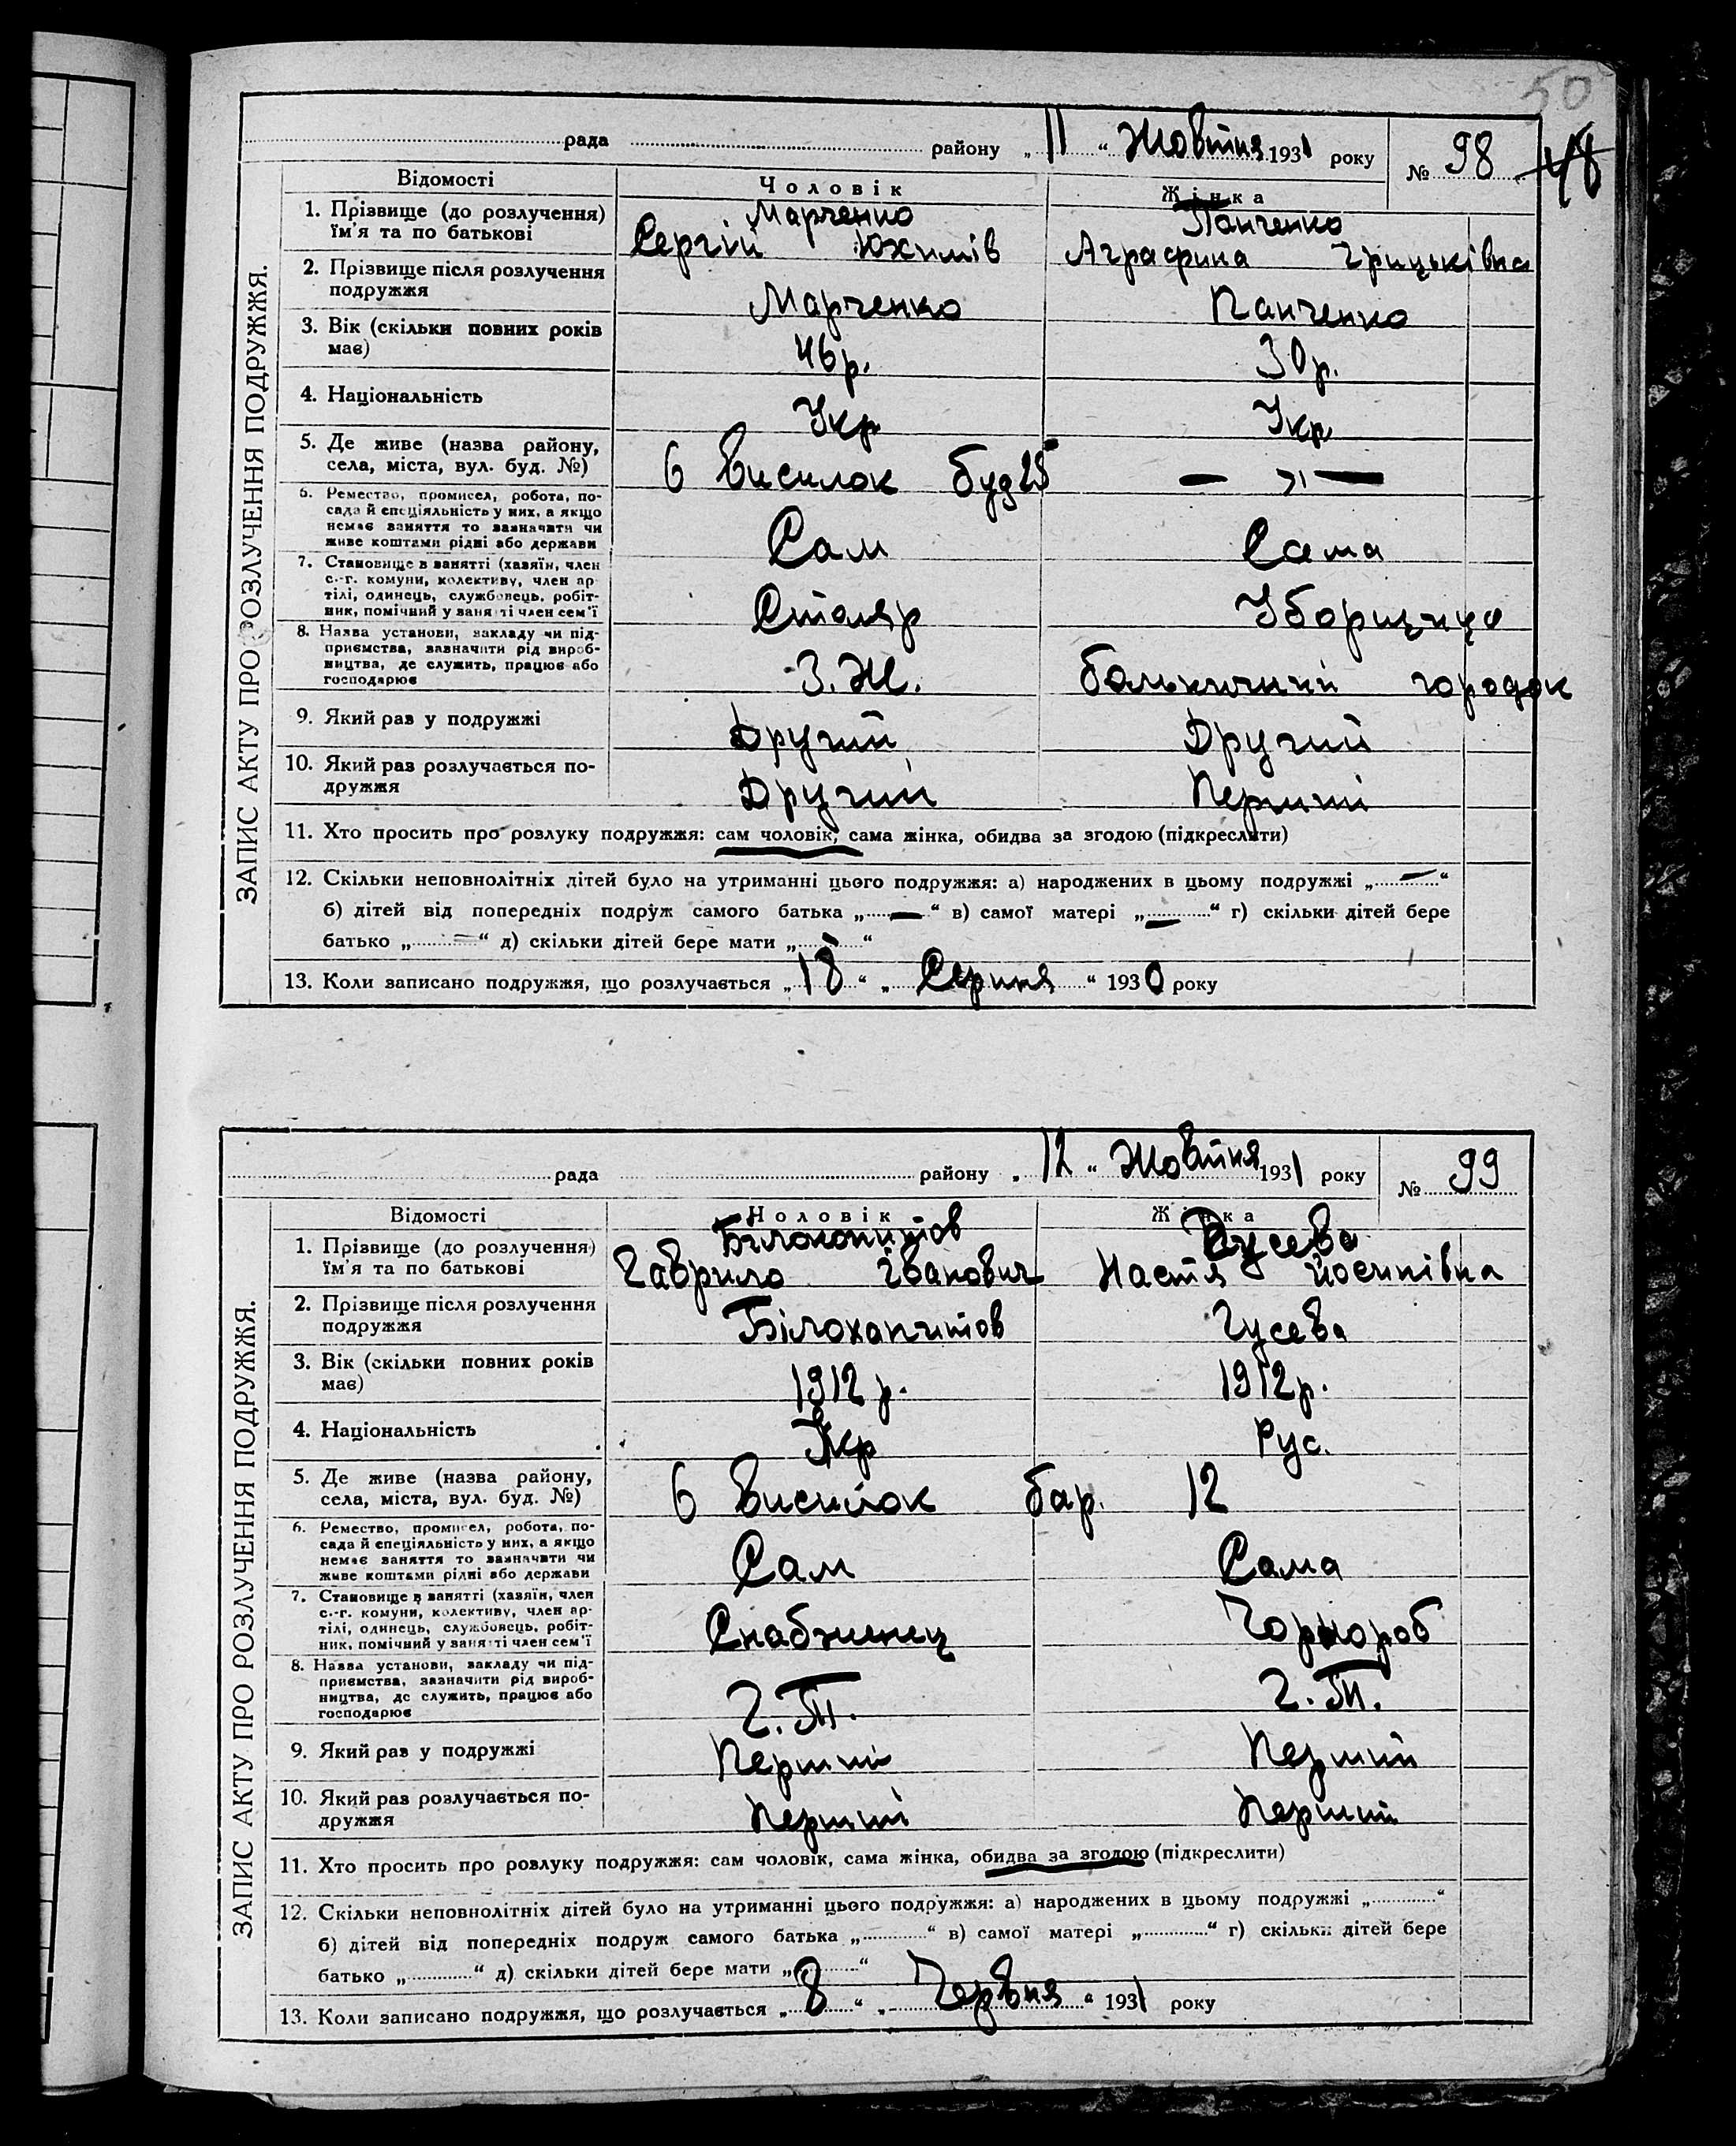 50
рада района „ 11 “ Жовтня 1931 року № 98 48
ЗАПИС АКТУ ПРО РОЗЛУЧЕННЯ ПОДРУЖЖЯ.
Відомості Чоловік Жінка
1. Прізвище (до розлучення) Марченко Панченко
їм'я та по батькові Сергій Юхимів Аграфина Грицьківна
2. Прізвище після розлучення
подружжя Марченко Панченко
3. Вік (скільки повних років
має) 46 р. 30 р.
4. Національність Укр Укр
5. Де живе (назва району,
села, міста, вул. буд. №) 6 Висилок буд 25 — „ —
6. Ремество, промисел, робота, по-
сада й спеціяльність у них, а якщо
немає заняття то зазначити чи
живе коштами рідні або держави Сам Сама
7. Становище в занятті (хазяїн, член
с.-г. комуни, колективу, член ар-
тілі, одинець, службовець, робіт-
ник, помічний у занятті член сем'ї Столяр Уборщиця
8. Назва установи, закладу чи під-
приємства, зазначити рід вироб-
ництва, де служить, працює або
господарює З.Ж. городок
9. Який раз у подружжі Другий Другий
10. Який раз розлучається по-
дружжя Другий Перший
11. Хто просить про розлуку подружжя: сам чоловік, сама жінка, обидва за згодою (підкреслити)
12. Скільки неповнолітніх дітей було на утриманні цього подружжя: а) народжених в цьому подружжі „ — “
б) дітей від попередніх подруж самого батька „ — “ в) самої матері „ — “ г) скільки дітей бере
батько „ — “ д) скільки дітей бере мати „ — “
13. Коли записано подружжя, що розлучається „ 18 “ „ Серпня “ 1930 року
рада району „ 12 “ Жовтня 1931 року № 99
ЗАПИС АКТУ ПРО РОЗЛУЧЕННЯ ПОДРУЖЖЯ.
Відомості Чоловік Жінка
1. Прізвище (до розлучення) Білокопитов Гусева
їм'я та по батькові Гаврило Іванович Настя Йосипівна
2. Прізвище після розлучення
подружжя Білокапитов Гусева
3. Вік (скільки повних років
має) 1912 р. 1912 р.
4. Національність Укр Рус.
5. Де живе (назва району,
села, міста, вул. буд. №) 6 Висилок бар. 12
6. Ремество, промисел, робота, по-
сада й спеціяльність у них, а якщо
немає заняття то зазначити чи
живе коштами рідні або держави Сам Сама
7. Становище в занятті (хазяїн, член
с.-г. комуни, колективу, член ар-
тілі, одинець, службовець, робіт-
ник, помічний у занятті член сем'ї Снабженец Чорнороб
8. Назва установи, закладу чи під-
приємства, зазначити рід вироб-
ництва, де служить, працює або
господарює Г.Т. Г.Т.
9. Який раз у подружжі Перший Перший
10. Який раз розлучається по-
дружжя Перший Перший
11. Хто просить про розлуку подружжя: сам чоловік, сама жінка, обидва за згодою (підкреслити)
12. Скільки неповнолітніх дітей було на утриманні цього подружжя: а) народжених в цьому подружжі „ “
б) дітей від попередніх подруж самого батька „ “ в) самої матері „ “ г) скільки дітей бере
батько „ “ д) скільки дітей бере мати „ “
13. Коли записано подружжя, що розлучається „ 8 “ „ Червня “ 1931 року